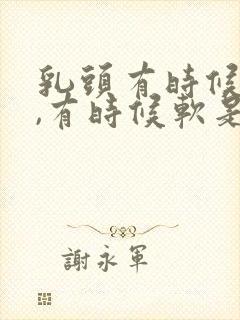 乳頭有時候
,有時候軟是
謝永軍